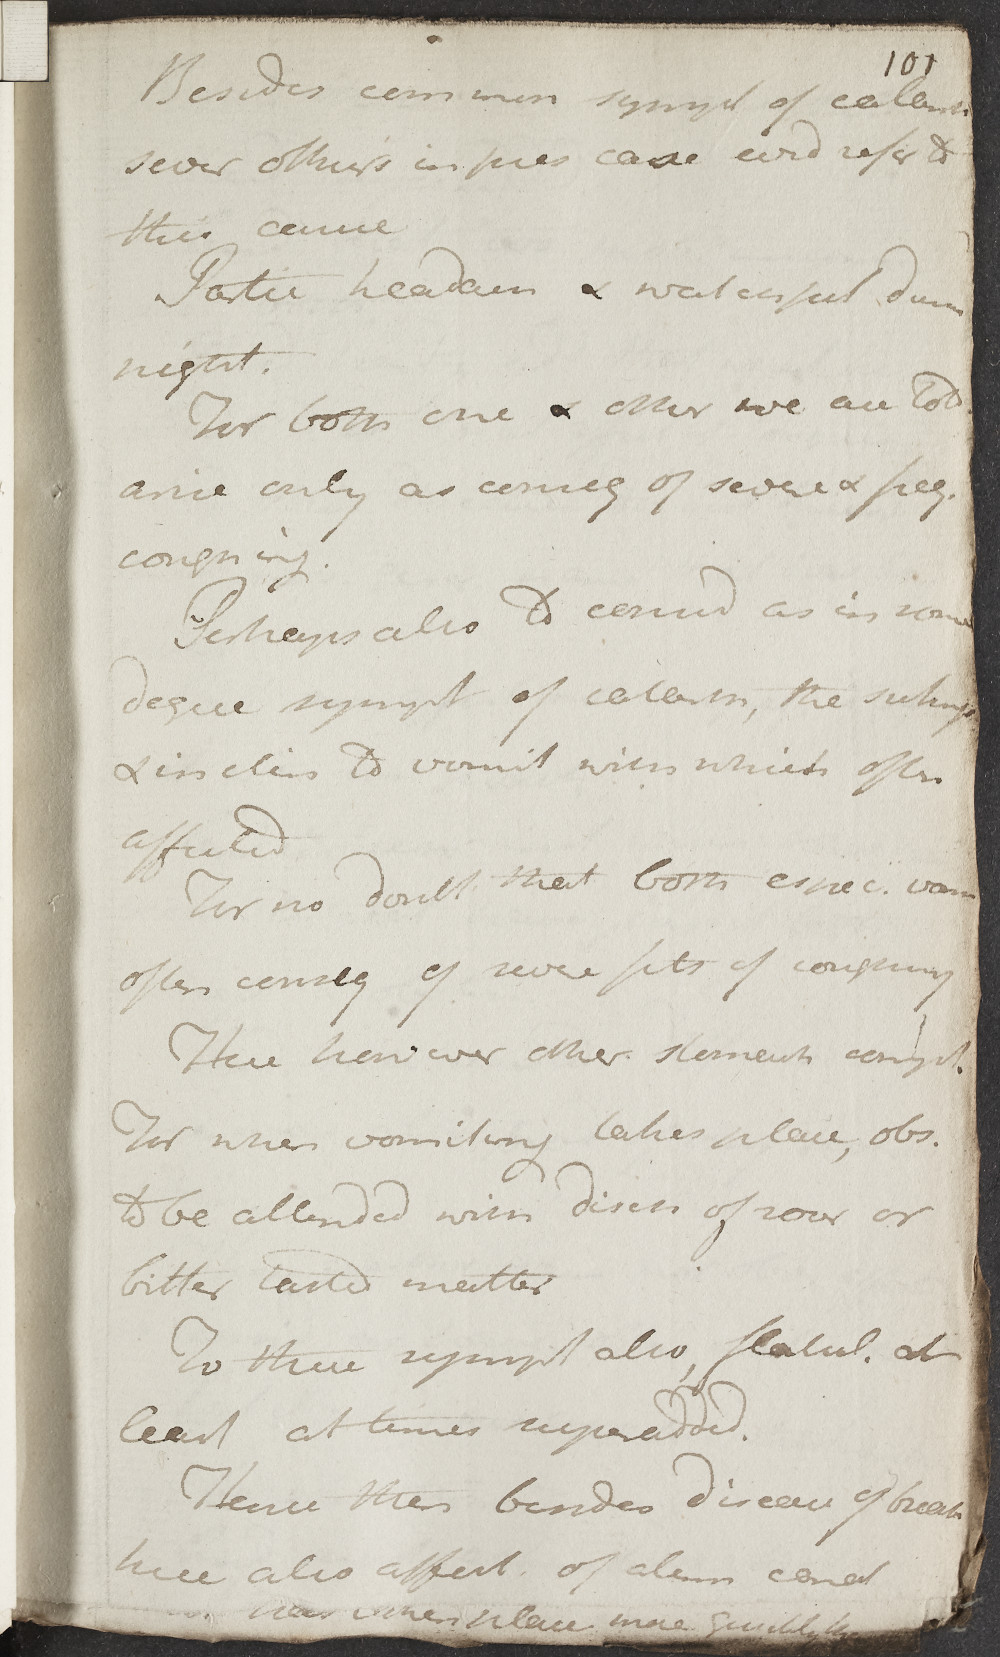 101
Besides common sympt of catarrh
sever others in pres case evid refer to
this cause
Partic headach & watchful dur
night.
For both one & other we are told
arise only as conseq of severe & freq.
coughing.
Perhaps also to consid as in some
degree sympt of catarrh, the
& inclin to vomit with which often
affected
For no doubt that both espec. vom
often conseq of severe fits of coughing
Here however other stomach compl.
For when vomiting takes place, obs.
to be attended with disch of sour or
bitter tasted matter
To these sympt also, flatul. at
least at times superadded.
Hence then besides disease of breath
here also affect. of alim canal
when place more quickly